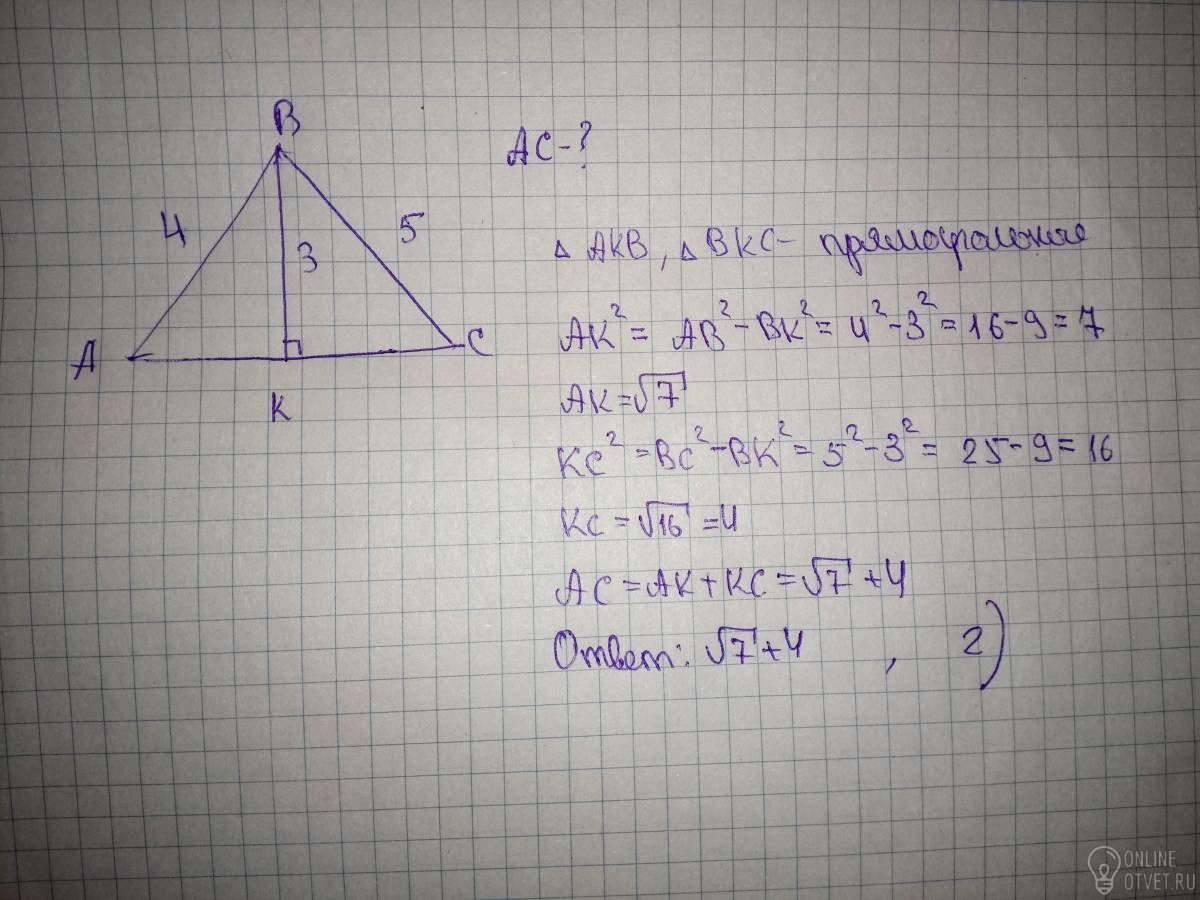 B
AC-?
4
3
5
△ AKB, △ BKC- прямоугольные
A
C
K
AK² = AB² - BK² = 4² - 3² = 16 - 9 = 7
AK = √7
KC² = BC² - BK² = 5² - 3² = 25 - 9 = 16
KC = √16 = 4
AC = AK + KC = √7 + 4
Ответ: √7 + 4 , г)
ONLINE
OTVET.RU